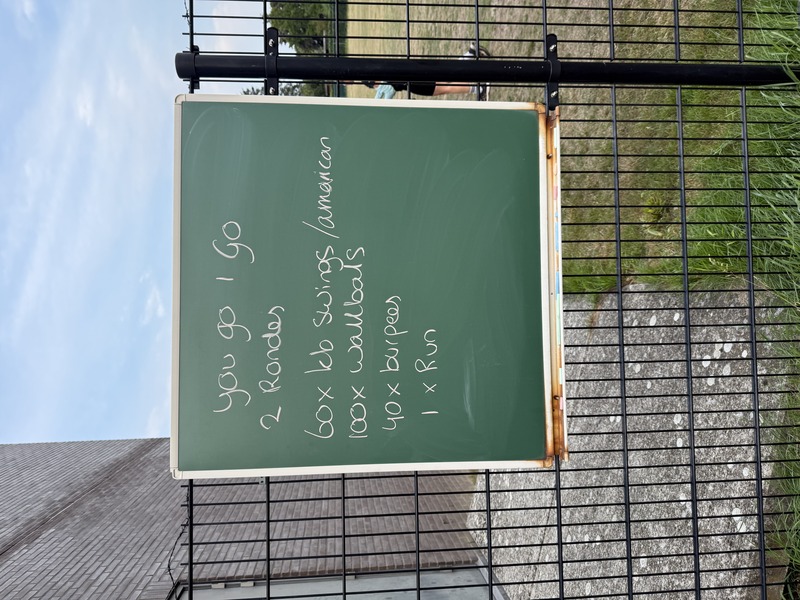 you go I go
2 Rondes
60x kb swings/american
100x wallbals
40x burpees
1 x Run